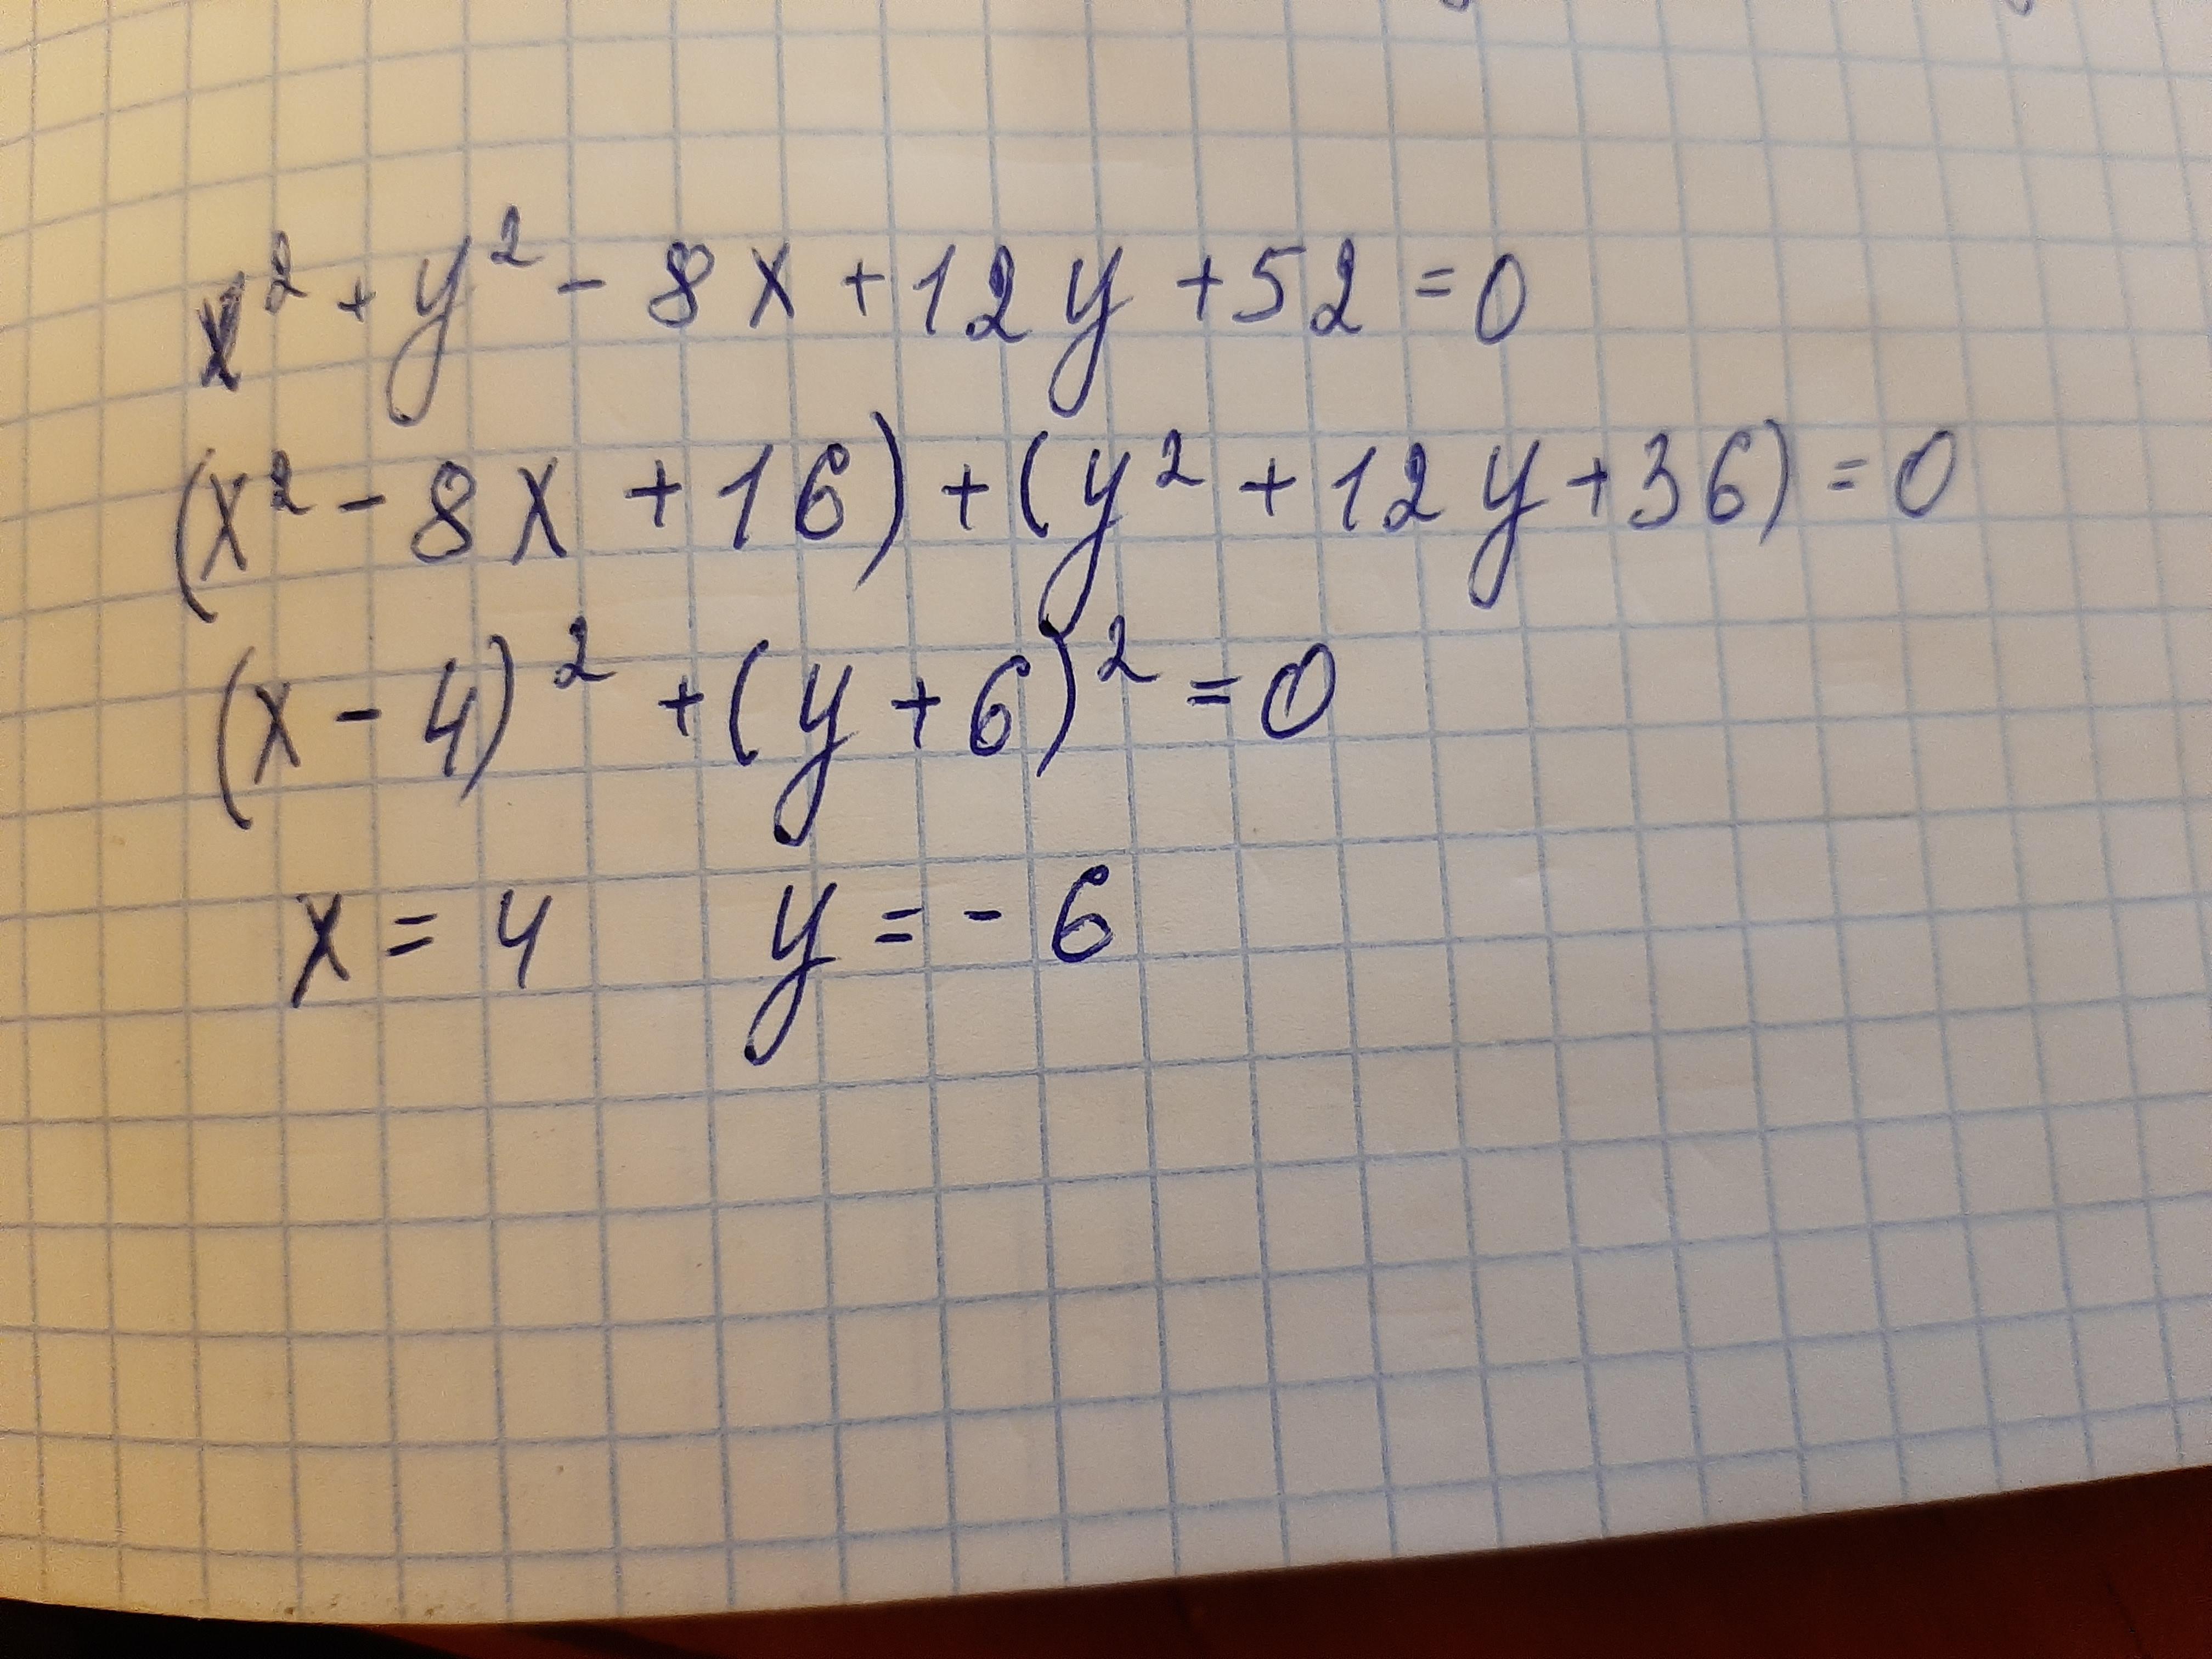 x² + y² - 8x + 12y + 52 = 0
(x² - 8x + 16) + (y² + 12y + 36) = 0
(x - 4)² + (y + 6)² = 0
x = 4 y = - 6